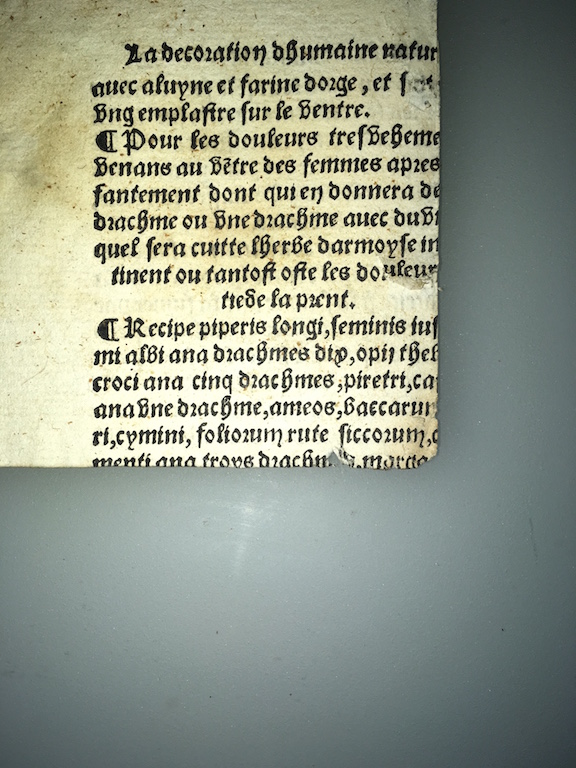 La decoration dhumaine natur
auec aluyne et farine dorge, et
vng emplastre sur le ventre.
¶ Pour les douleurs tresveheme
venans au vẽtre des femmes apres
fantement dont qui en donnera de
drachme ou vne drachme auec du vi
quel sera cuitte lherbe darmoyse in
tinent ou tantost oste les douleur
tiede la prent.
¶ Recipe piperis longi, seminis ius
mi albi ana drachmes dix, opij theb
croci ana cinq drachmes, piretri, ca
ana vne drachme, ameos, baccarum
ri, cymini, foliorum rute siccorum,
menti ana troys drachmes, marga